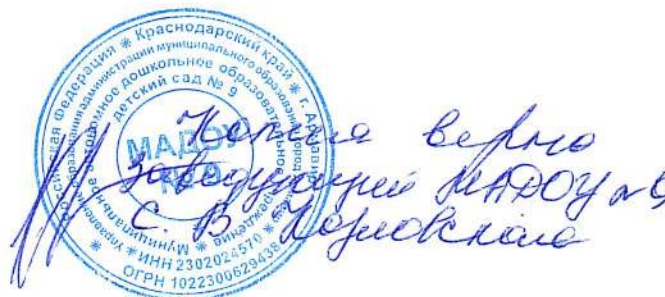 Российская Федерация * Краснодарский край * г. Армавир
Управление образования администрации муниципального образования город
Муниципальное автономное дошкольное образовательное учреждение
детский сад № 9
МАДОУ
№ 9
* ИНН 2302024570 *
ОГРН 1022300629438
Копия верна
Заведующий МАДОУ № 9
С. В